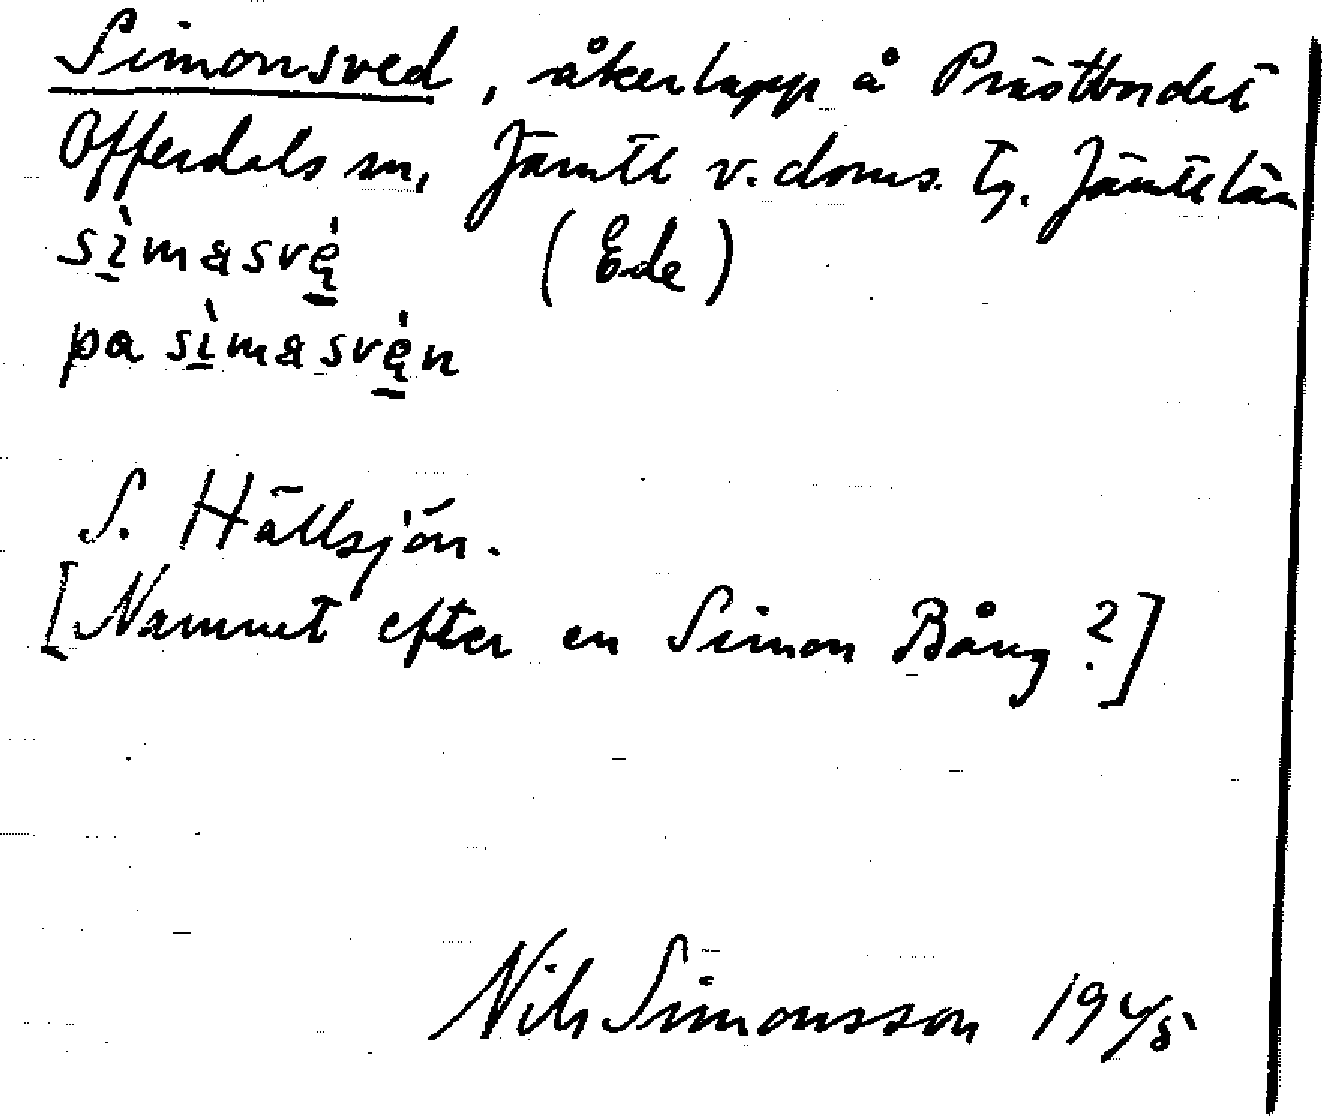 Simonsved, åkerlapp å Prästbordet
Offerdals sn, Jämtl v. doms. tg. Jämtl län
sìmasvę́ (Ede)
pa sìmasvę́n
S. Hällsjön.
[Namnet efter en Simon Bång?]
Nils Simonsson 1945